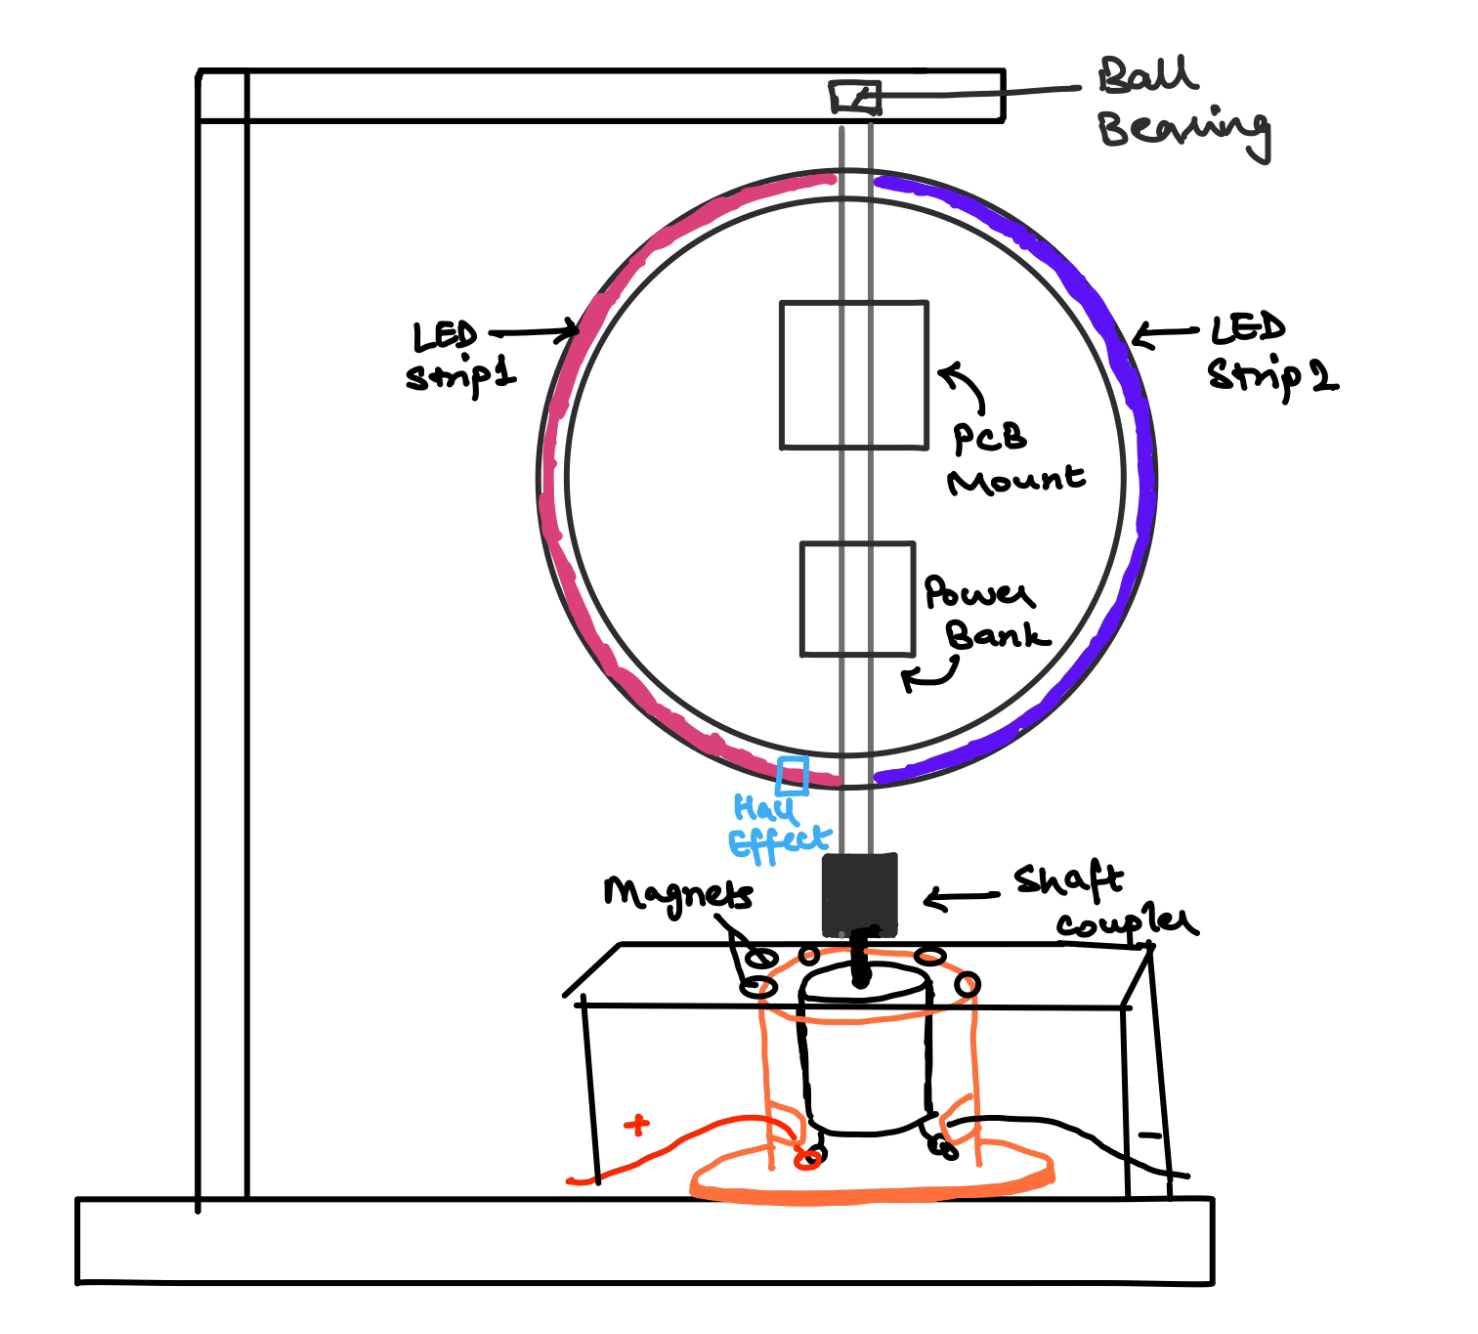 Ball
Bearing
LED
Strip1
LED
Strip2
PCB
Mount
Power
Bank
Hall
Effect
Magnets
Shaft
coupler
+
-